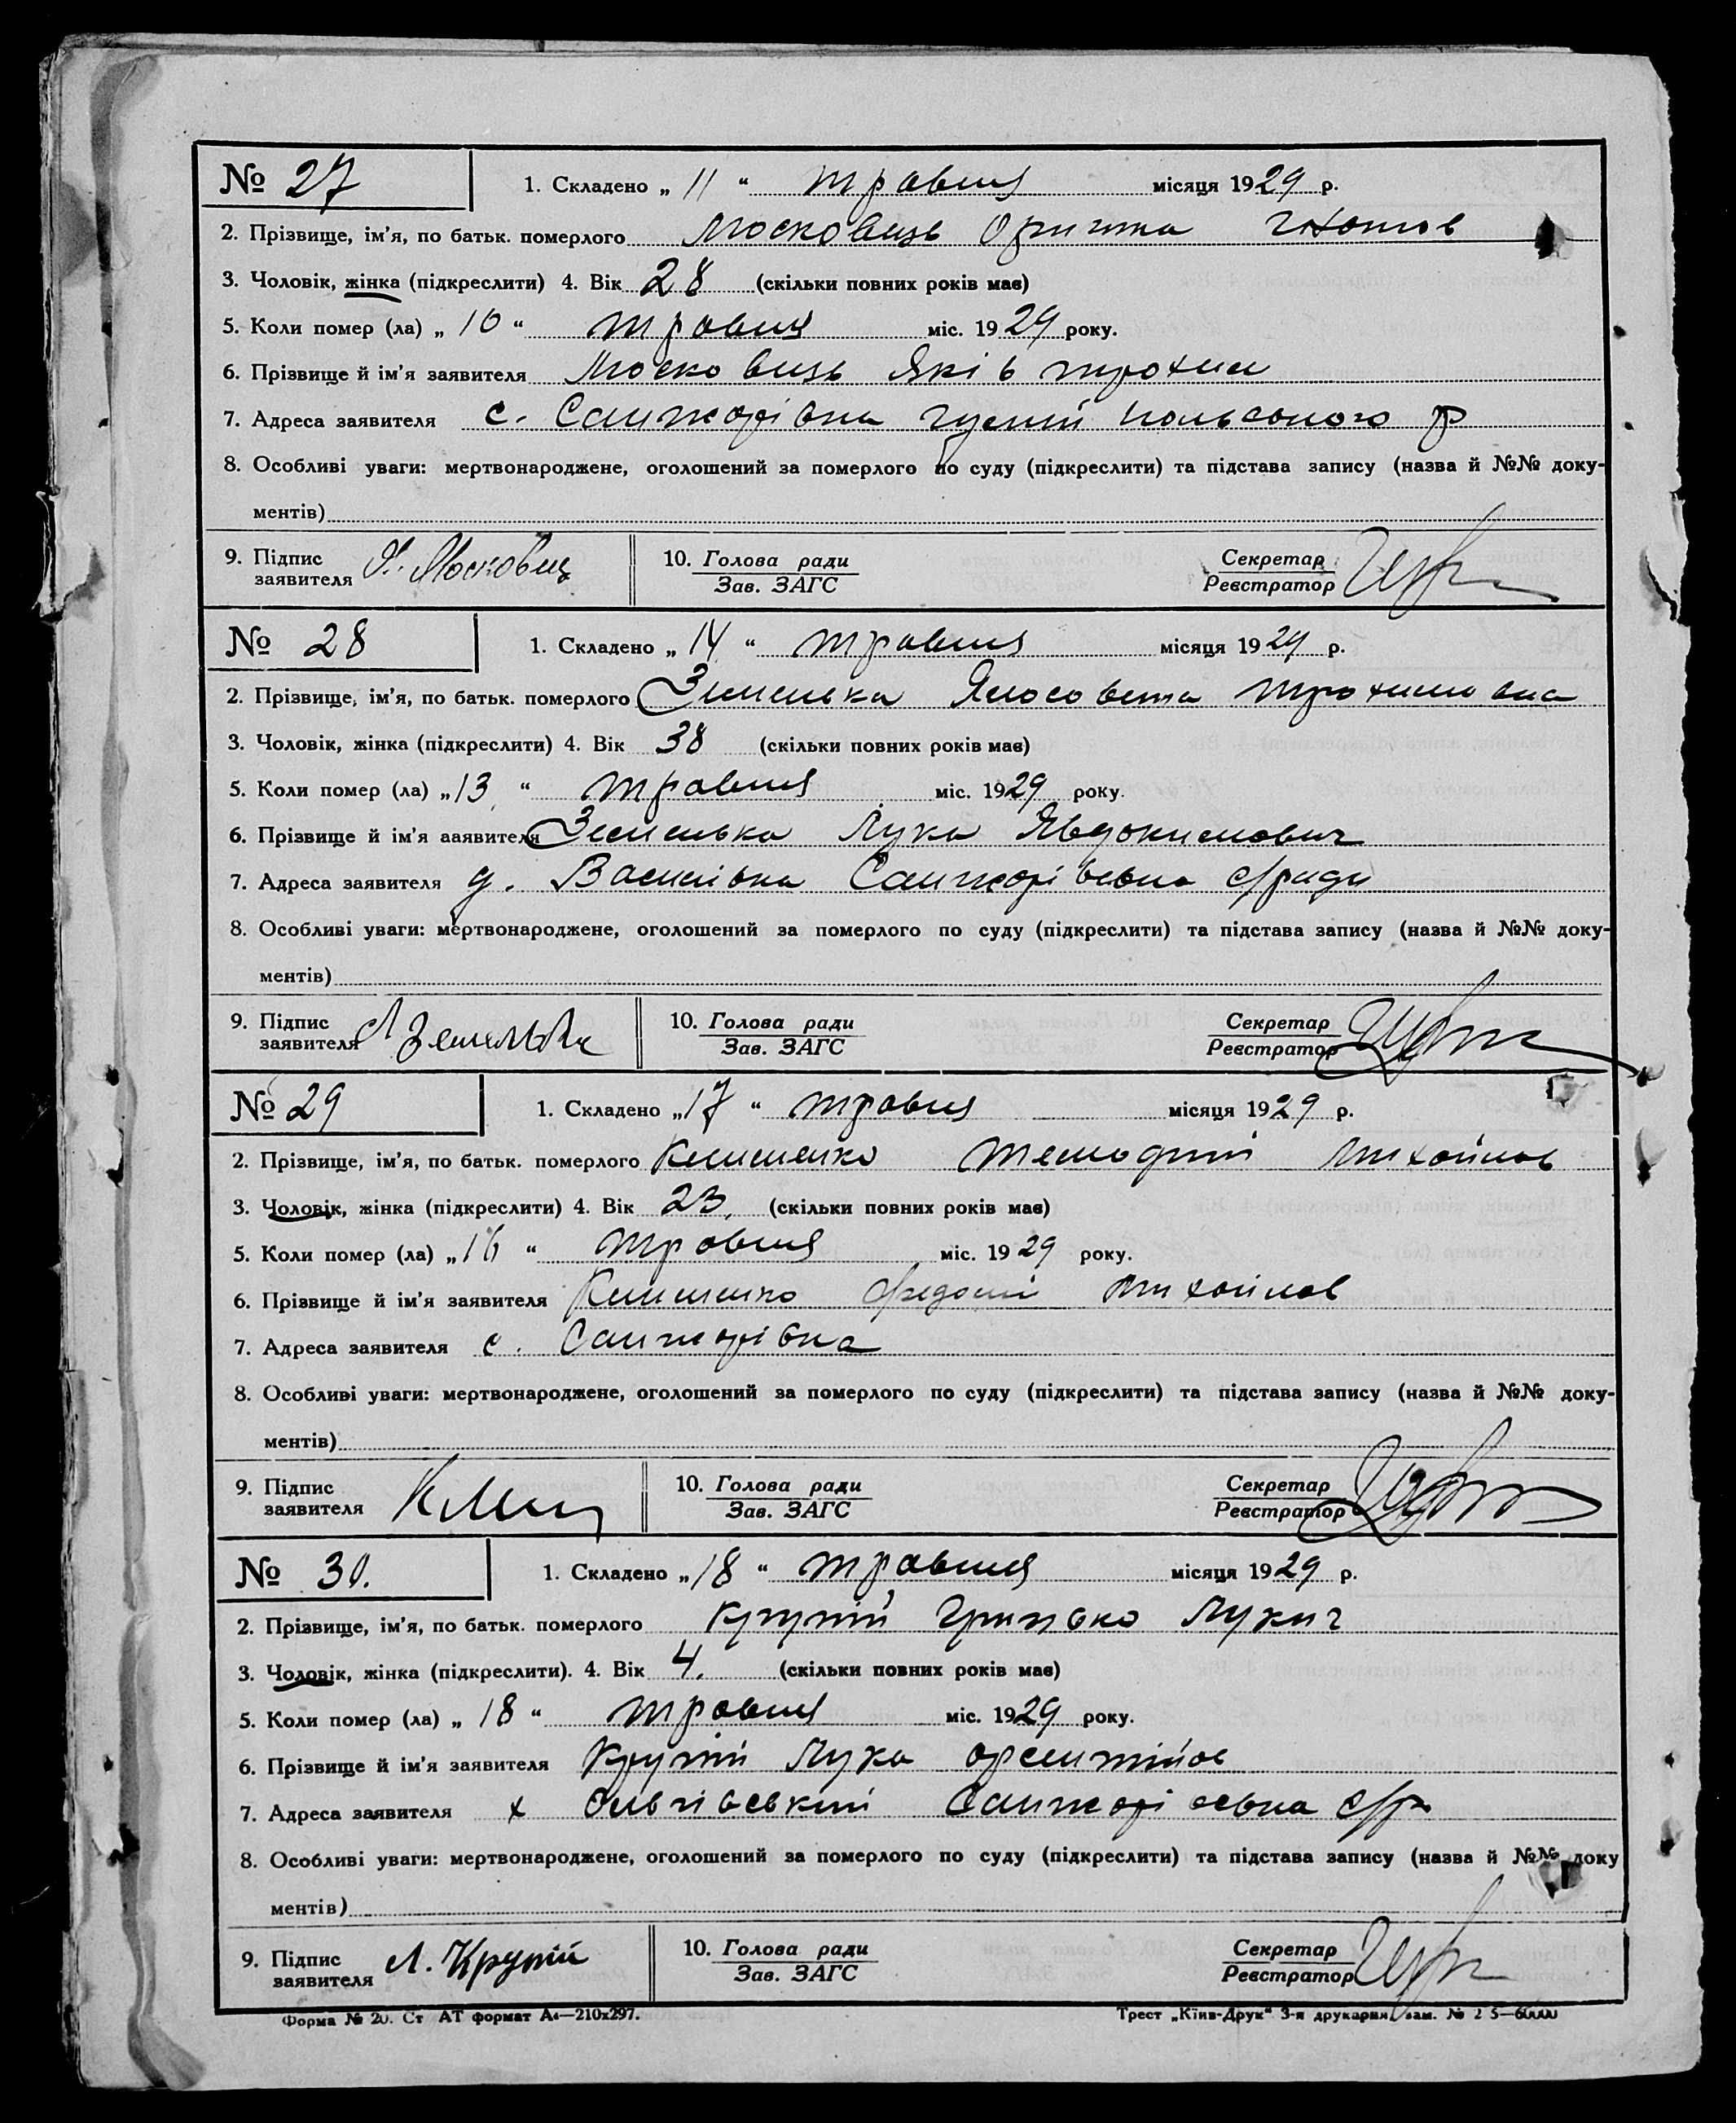 № 27 1. Складено „ 11 “ травня місяця 1929 р.
2. Прізвище, ім'я, по батьк. померлого Московець Оришка
3. Чоловік, жінка (підкреслити) 4. Вік 28 (скільки повних років має)
5. Коли помер (ла) „ 10 “ травня міс. 1929 року.
6. Прізвище й ім'я заявителя Московець Яків трохим
7. Адреса заявителя с. Санжарівка польського р
8. Особливі уваги: мертвонароджене, оголошений за померлого по суду (підкреслити) та підстава запису (назва й №№ доку-
ментів)
9. Підпис заявителя Я. Московец 10. Голова ради Секретар
Зав. ЗАГС Реєстратор
№ 28 1. Складено „ 14 “ травня місяця 1929 р.
2. Прізвище, ім'я, по батьк. померлого Земелька Ялосовета трохимовна
3. Чоловік, жінка (підкреслити) 4. Вік 38 (скільки повних років має)
5. Коли помер (ла) „ 13 “ травня міс. 1929 року.
6. Прізвище й ім'я заявителя Земелька Лука Явдокимович
7. Адреса заявителя д. Василівка Санжарівська с/ради
8. Особливі уваги: мертвонароджене, оголошений за померлого по суду (підкреслити) та підстава запису (назва й №№ доку-
ментів)
9. Підпис заявителя Л Земелька 10. Голова ради Секретар
Зав. ЗАГС Реєстратор
№ 29 1. Складено „ 17 “ травня місяця 1929 р.
2. Прізвище, ім'я, по батьк. померлого Клименко Михайлов
3. Чоловік, жінка (підкреслити) 4. Вік 23 (скільки повних років має)
5. Коли помер (ла) „ 16 “ травня міс. 1929 року.
6. Прізвище й ім'я заявителя Клименко Михайлов
7. Адреса заявителя с. Санжарівка
8. Особливі уваги: мертвонароджене, оголошений за померлого по суду (підкреслити) та підстава запису (назва й №№ доку-
ментів)
9. Підпис заявителя Клим 10. Голова ради Секретар
Зав. ЗАГС Реєстратор
№ 30. 1. Складено „ 18 “ травня місяця 1929 р.
2. Прізвище, ім'я, по батьк. померлого Крупій Грицько Лукич
3. Чоловік, жінка (підкреслити). 4. Вік 4. (скільки повних років має)
5. Коли помер (ла) „ 18 “ травня міс. 1929 року.
6. Прізвище й ім'я заявителя Крупій Лука
7. Адреса заявителя х Санжарівська с/р
8. Особливі уваги: мертвонароджене, оголошений за померлого по суду (підкреслити) та підстава запису (назва й №№ доку
ментів)
9. Підпис заявителя Л. Крупій 10. Голова ради Секретар
Зав. ЗАГС Реєстратор
Форма № 20. Ст АТ формат А4—210х297. Трест „Київ-Друк“ 3-я друкарня, зам. №